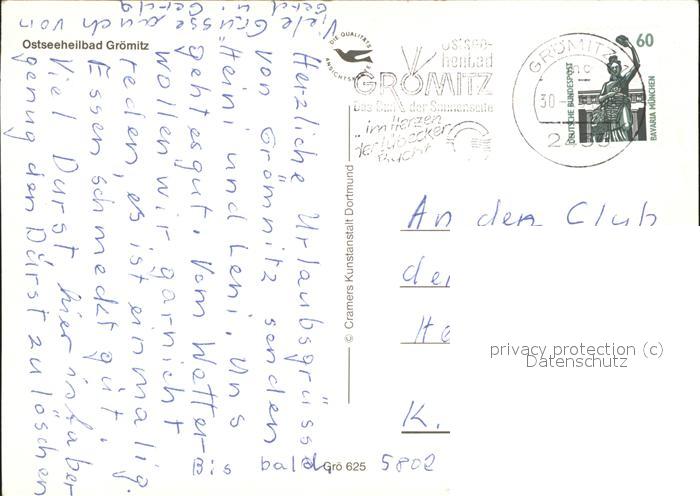 Ostseeheilbad Grömitz
Herzliche Urlaubsgrüsse
von Grömnitz senden
"Heini und Leni. Uns
geht es gut. Vom Wetter
wollen wir garnicht
reden, es ist einmalig.
Essen schmeckt gut.
Viel Durst, hier ist aber
genug den Dürst zu löschen
Bis bald.
Viele Grüsse auch von
Gerd u. Gerda
DIE QUALITÄTS
ANSICHTSKARTE
Ostsee-
heilbad
GRÖMITZ
Das Bad an der Sonnenseite
... im Herzen
der Lübecker
Bucht
GRÖMITZ
30
60
DEUTSCHE BUNDESPOST
BAVARIA MÜNCHEN
© Cramers Kunstanstalt Dortmund
An den Club
de
He
K.
privacy protection (c)
Datenschutz
Grö 625
5802